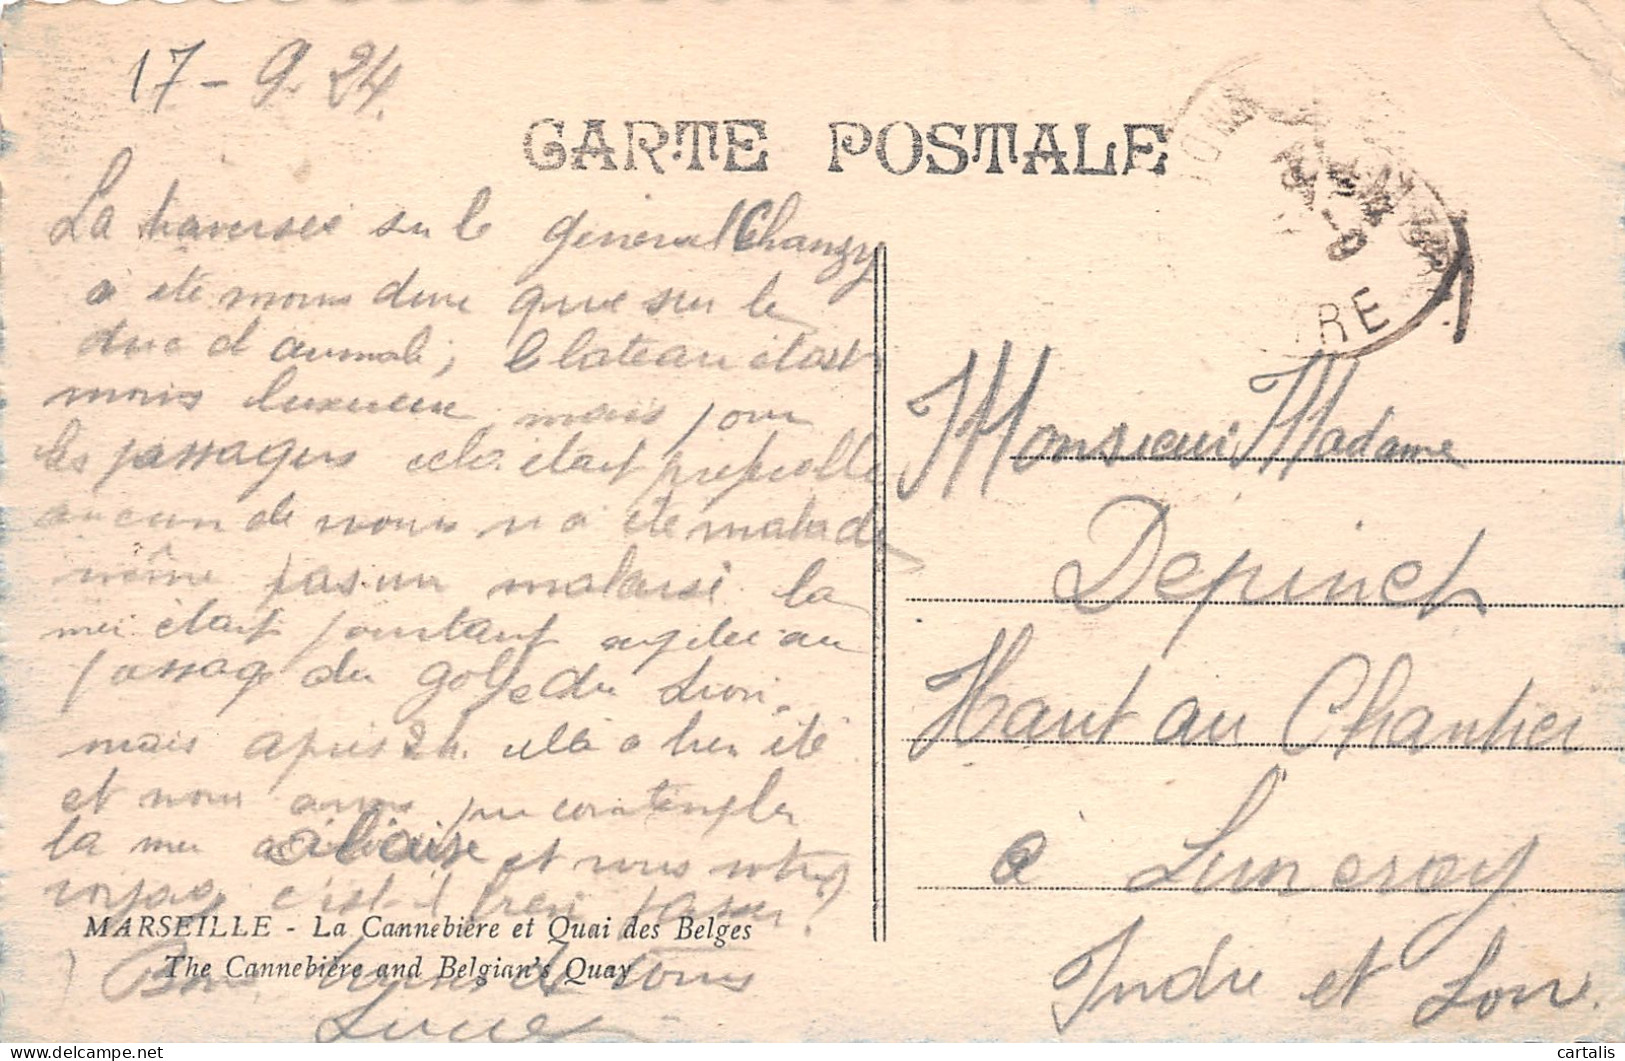 17-9-24.
CARTE POSTALE
La traversée sur le général Chanzy
a été moins dure que sur le
duc d'aumale, le bateau était
moins luxueux mais pour
les passagers cela était préférable
aucun de nous n'a été malade
même pas un malaise. la
mer était pourtant agitée au
passage du golfe du Lion.
mais après 2h. elle a bien été
et nous avons pu contempler
la mer à l'aise et vous votre
voyage c'est-il bien passer?
MARSEILLE - La Cannebière et Quai des Belges
The Cannebière and Belgian's Quay
Bons baisers de tous
TRE
Monsieur Madame
Depinet
Haut au Chantier
à Luneray
Indre et Loire.
cartalis